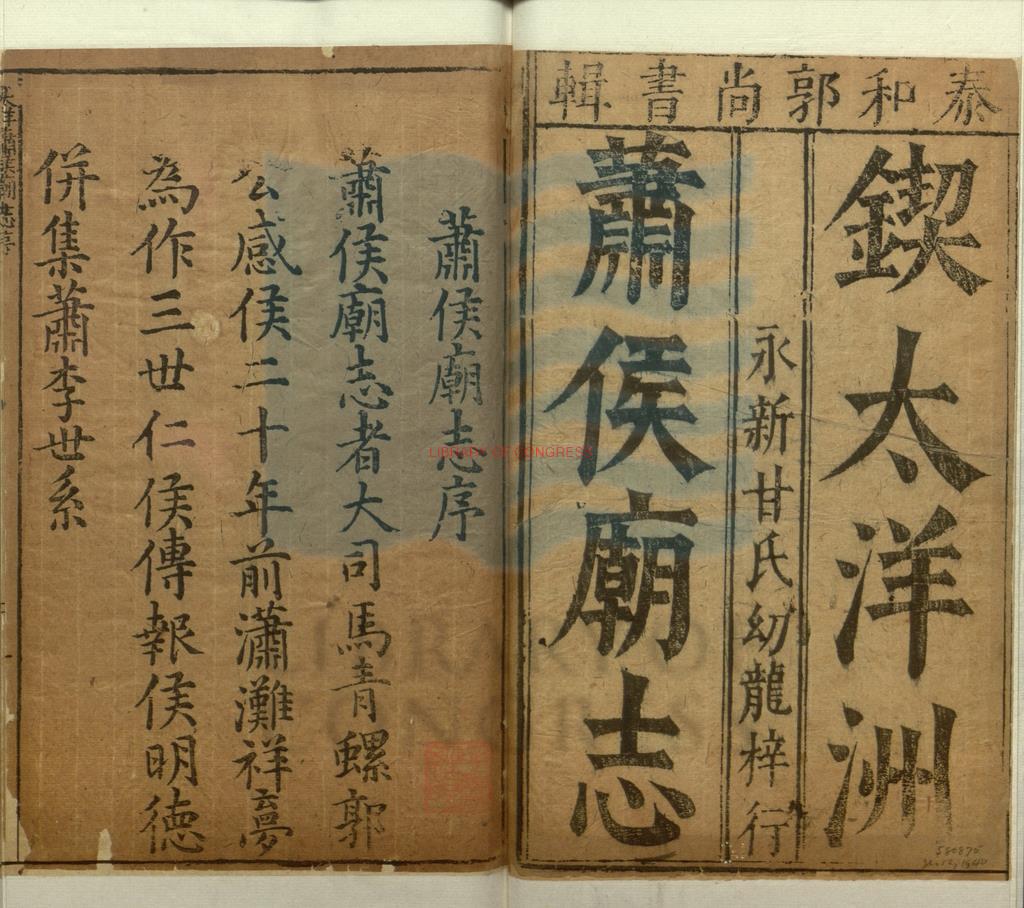 泰和郭尚書輯
鍥太洋洲
蕭侯廟志
永新甘氏幼龍梓行
蕭侯廟志序
蕭侯廟志者大司馬青螺郭
公感侯二十年前瀟灘祥夢
為作三世仁侯傳報侯明德
併集蕭李世系
LIBRARY OF CONGRESS